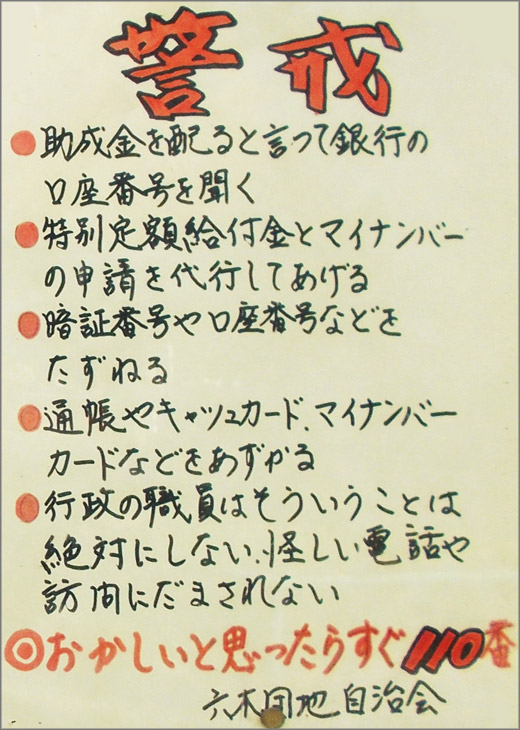 警戒
●助成金を配ると言って銀行の
口座番号を聞く
●特別定額給付金とマイナンバー
の申請を代行してあげる
●暗証番号や口座番号などを
たずねる
●通帳やキャッシュカード、マイナンバー
カードなどをあずかる
●行政の職員はそういうことは
絶対にしない、怪しい電話や
訪問にだまされない
◎おかしいと思ったらすぐ110番
六木団地自治会